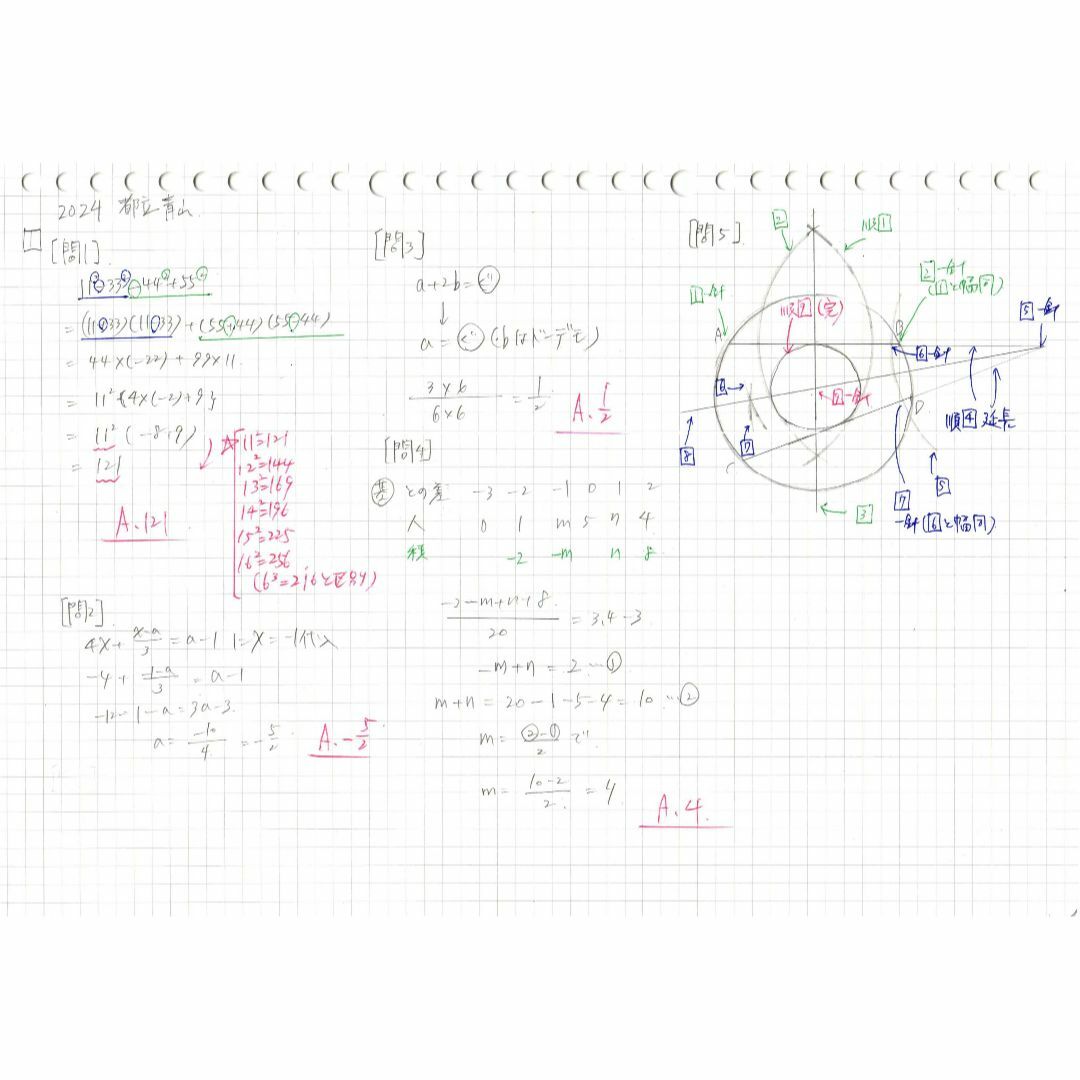 2024 都立青山
[問1]
11²-33²-44²+55²
=(11+33)(11-33)+(55+44)(55-44)
=44×(-22)+99×11
=11²{4×(-2)+9}
=11²(-8+9)
=121
A.121
☆
11²=121
12²=144
13²=169
14²=196
15²=225
16²=256
(6³=216と区別)
[問2]
4x+\frac{x-a}{3}=a-1にx=-1代入
-4+\frac{-1-a}{3}=a-1
-12-1-a=3a-3
a=\frac{-10}{4}=-\frac{5}{2}
A.-\frac{5}{2}
[問3]
a+2b=
↓
a=
(bはドーデモ)
\frac{3×6}{6×6}=\frac{1}{2}
A.\frac{1}{2}
[問4]
基との差 -3 -2 -1 0 1 2
人 0 1 m 5 n 4
積 -2 -m n 8
\frac{-2-m+n+8}{20}=3.4-3
-m+n=2…①
m+n=20-1-5-4=10…②
m=\frac{②-①}{2}で
m=\frac{10-2}{2}=4
A.4.
[問5]
2
順1
1-針
2-針
(1と幅同)
5-針
順9(完)
A
B
6-針
6
9-針
順4延長
D
8
7
C
5
3
7
-針(6と幅同)